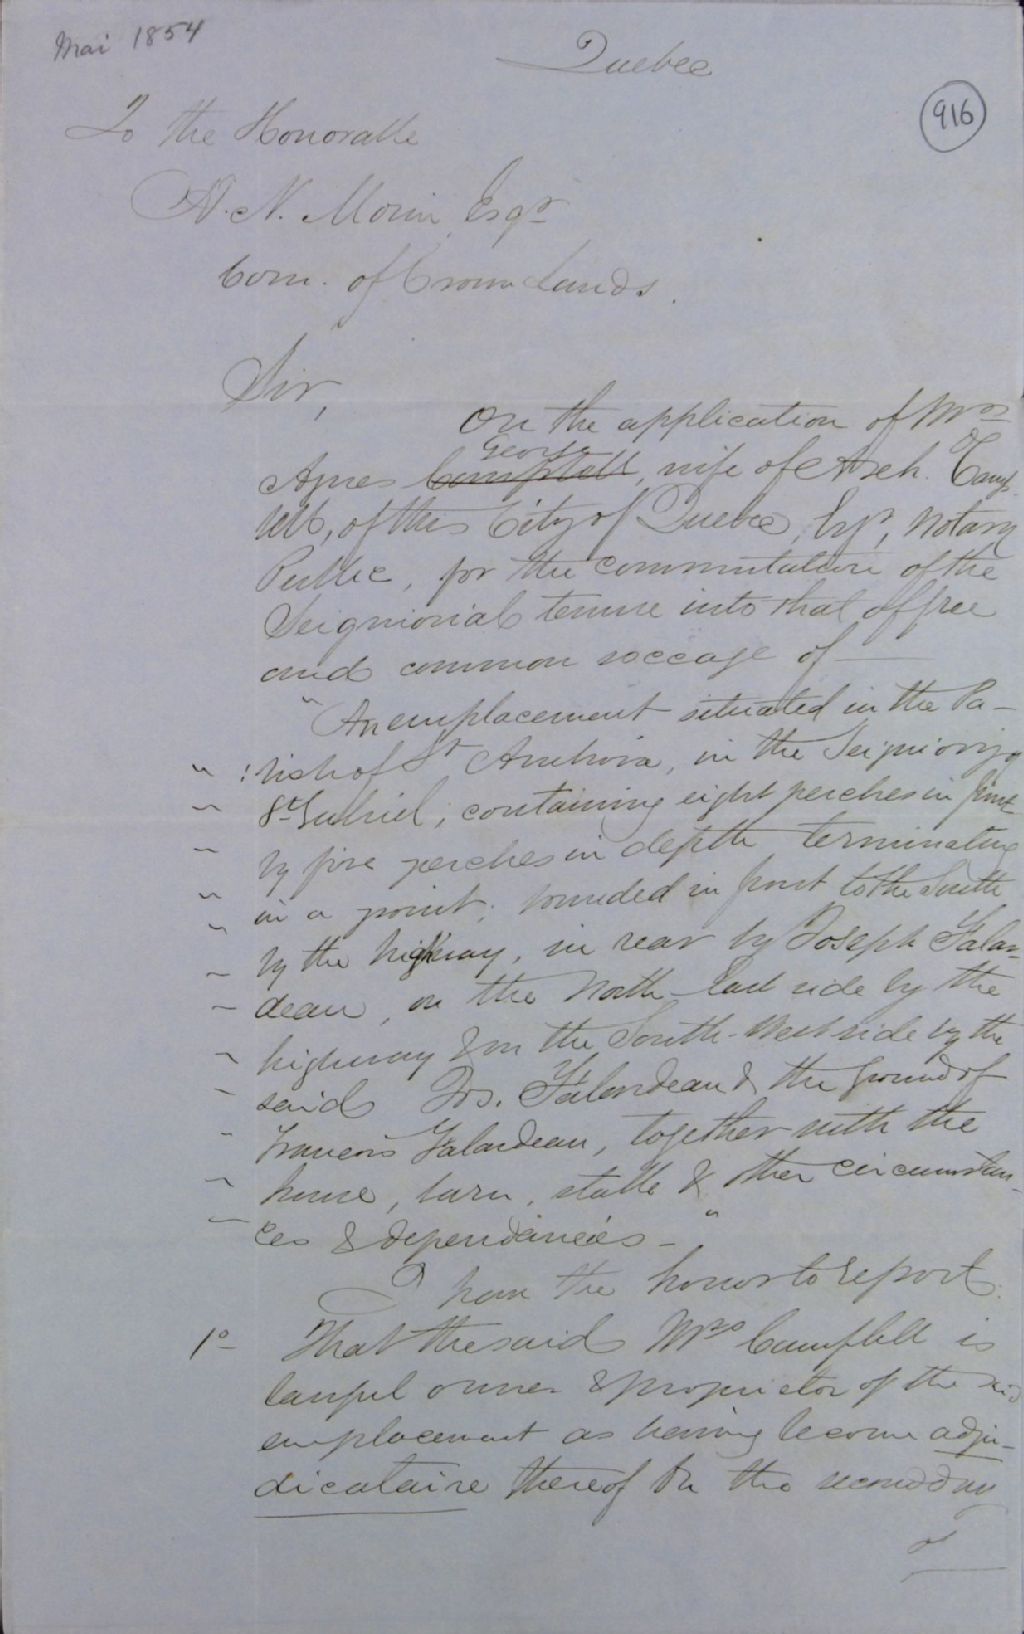 Mai 1854
Quebec
916
To the Honorable
A. N. Morin Esqr
Com. of Crown Lands.
Sir,
On the application of Mrs
George
Agnes Campbell, wife of Arch. Camp-
bell, of this City of Quebec, Esqr, Notary
Public, for the commutation of the
Seigniorial tenure into that of free
and common soccage of —
"An emplacement situated in the Pa-
" rish of St Ambroise, in the Seigniory of
" St Gabriel, containing eight perches in front
" by five perches in depth terminating
" in a point; bounded in front to the South
" by the highway, in rear by Joseph Falar-
" deau, on the North-East side by the
" highway & on the South-West side by the
" said Jos. Falardeau & the ground of
" Francois Falardeau, together with the
" house, barn, stable & other circumstan-
" ces & dependancies —"
I have the honor to report.
1o That the said Mrs Campbell is
lawful owner & proprietor of the said
emplacement as having become adju-
dicataire thereof on the second day
of